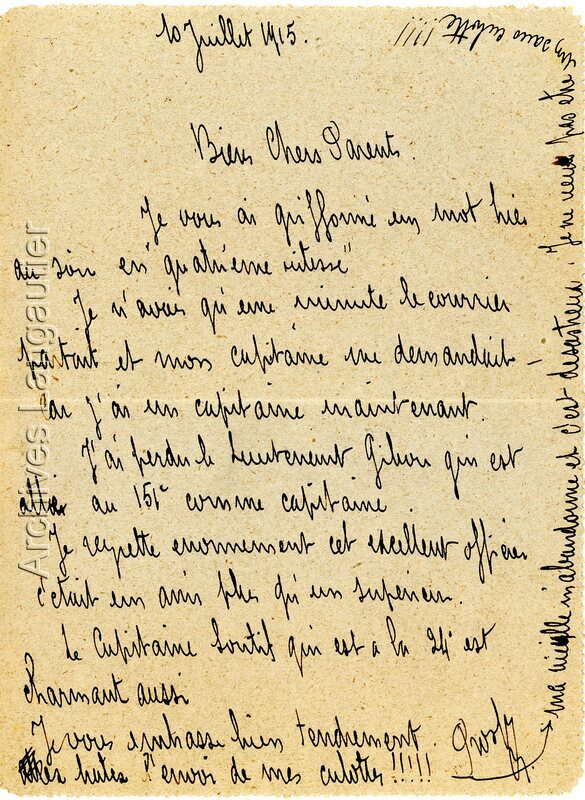 10 Juillet 1915.
Biens Chers Parents.
Je vous ai griffonné un mot hier
au soir en "quatrième vitesse"
Je n'avais qu'une minute le courrier
partait et mon capitaine me demandait –
car j'ai un capitaine maintenant.
J'ai perdu le Lieutenant qui est
au 151e comme capitaine.
Je regrette enormement cet excellent officier
c'était un ami plus qu'un supérieur.
Le Capitaine Soutif qui est a la 24e est
Charmant aussi
Je vous embrasse bien tendrement.
hatez l'envoi de mes culottes !!!!!
ma vieille m'abandonne et c'est desastreux. Je ne veux pas etre un
sans culotte !!!!
Archives Laugaulier